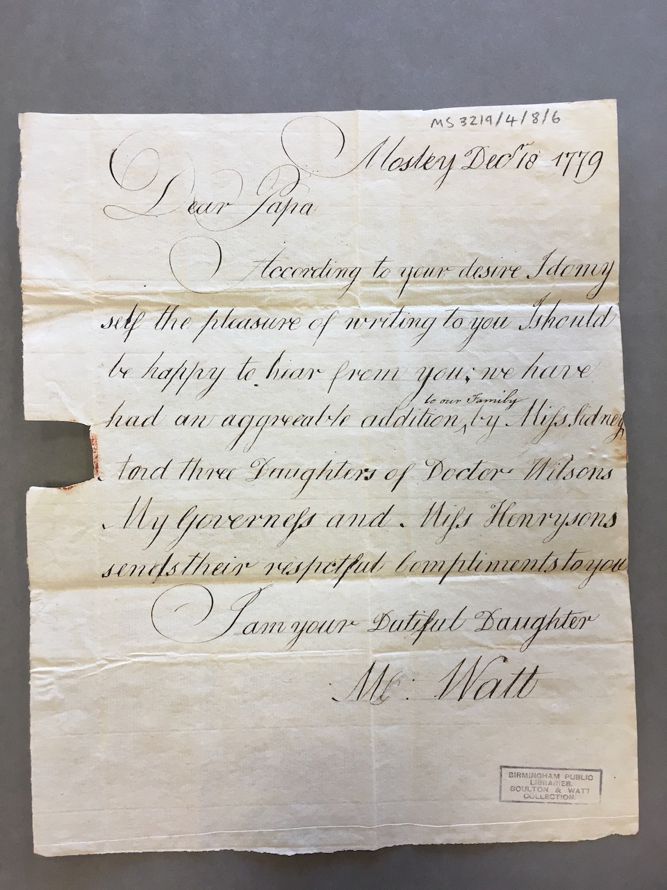 MS 3219/4/8/6
Mosley Decr 18 1779
Dear Papa
According to your desire I do my
self the pleasure of writing to you I should
be happy to hear from you; we have
had an aggreeable addition ^ to our Family by Miss Sidney
And three Daughters of Doctor Wilsons
My Governess and Miss Henrysons
sends their respctful Compliments to you
I am your Dutiful Daughter
Mt: Watt
BIRMINGHAM PUBLIC
LIBRARIES.
BOULTON & WATT
COLLECTION